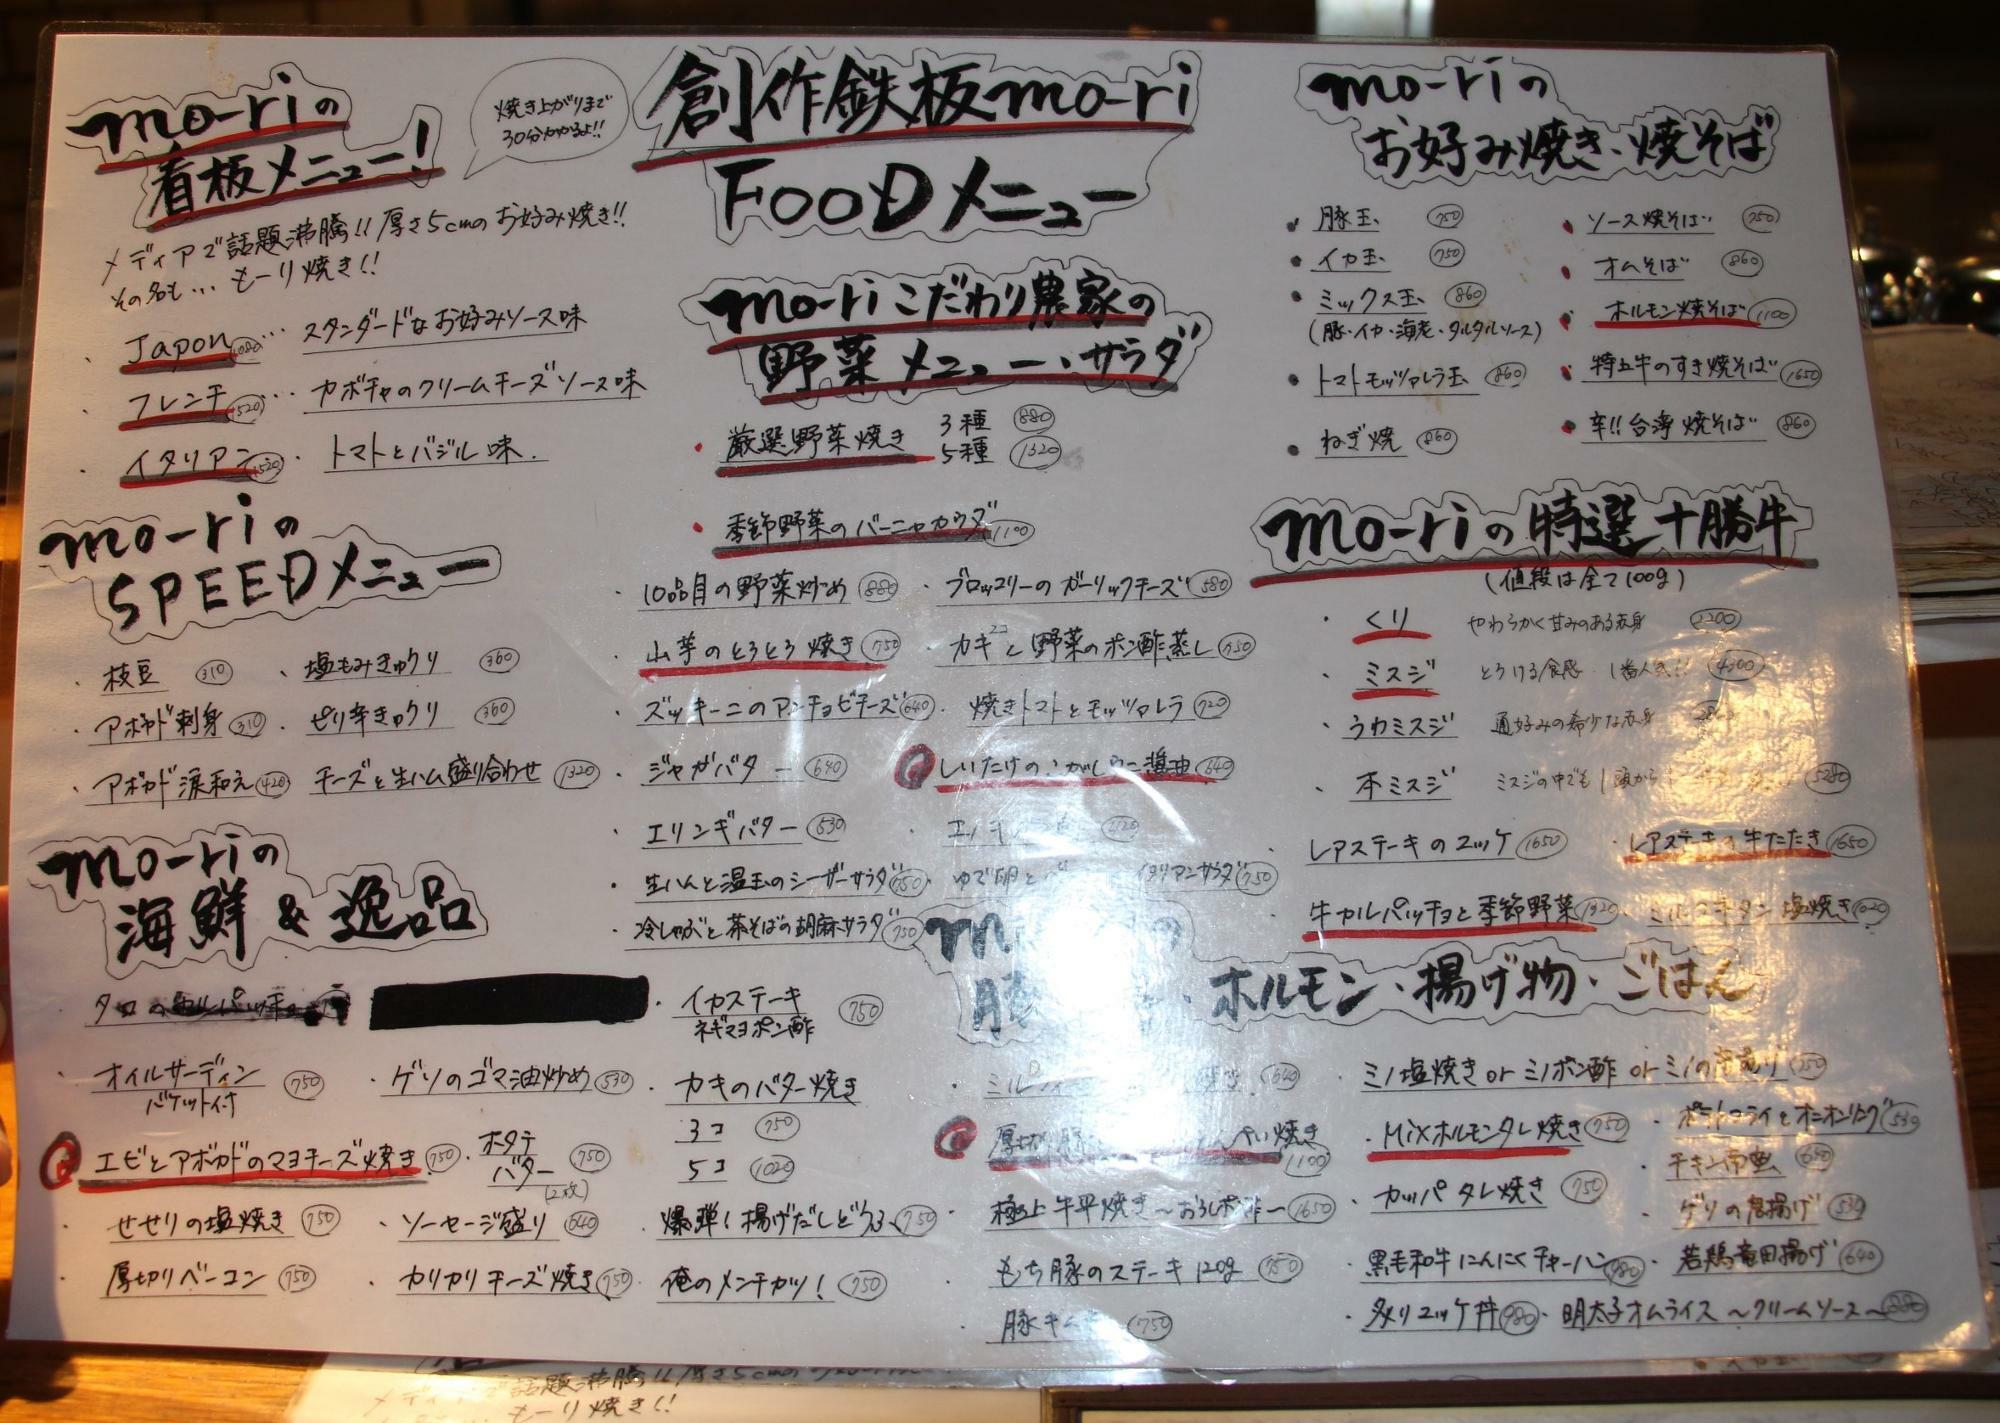 mo-riの
看板メニュー!
焼き上がりまで
30分かかるよ!!
メディアで話題沸騰!! 厚さ5cmのお好み焼き!!
その名も… もーり焼き!!
・Japon 1080 … スタンダードなお好みソース味
・フレンチ 1520 … カボチャのクリームチーズソース味
・イタリアン 1520 ・トマトとバジル味.
mo-riの
SPEEDメニュー
・枝豆 310 ・塩もみきゅうり 360
・アボカド刺身 310 ・ピリ辛きゅうり 360
・アボカド涙和え 420 チーズと生ハム盛り合わせ 1320
mo-riの
海鮮&逸品
・イカステーキ 750
ネギマヨポン酢
・オイルサーディン 750
バケット付
・ゲソのゴマ油炒め 530
・カキのバター焼き
3コ 750
5コ 1020
エビとアボカドのマヨチーズ焼き 750
・ホタテ
バター 750
(2枚)
・せせりの塩焼き 750 ・ソーセージ盛り 640 ・爆弾!揚げだしどうふ 750
・厚切りベーコン 750 ・カリカリチーズ焼き 750 ・俺のメンチカツ! 750
創作鉄板mo-ri
FOODメニュー
mo-riこだわり農家の
野菜メニュー・サラダ
・厳選野菜焼き 3種 880
5種 1320
・季節野菜のバーニャカウダ 1100
・10品目の野菜炒め 880 ・ブロッコリーのガーリックチーズ 580
・山芋のとろとろ焼き 750 ・カキ2コと野菜のポン酢蒸し 750
・ズッキーニのアンチョビチーズ 640 ・焼きトマトとモッツァレラ 720
・ジャガバター 640 しいたけのこがしウニ醤油 640
・エリンギバター 530
・生ハムと温玉のシーザーサラダ 750 ・ゆで卵と イタリアンサラダ 750
・冷しゃぶと茶そばの胡麻サラダ 750
mo-riの
お好み焼き・焼そば
・豚玉 750 ・ソース焼そば 750
・イカ玉 750 ・オムそば 860
・ミックス玉 860
(豚・イカ・海老・タルタルソース)
・ホルモン焼そば 1100
・トマトモッツァレラ玉 860 ・特上牛のすき焼そば 1650
・ねぎ焼 860 ・辛!!台湾焼そば 860
mo-riの特選十勝牛
(値段は全て100g)
・くり やわらかく甘みのある赤身 2200
・ミスジ とろける食感・1番人気!! 4300
・うわミスジ 通好みの希少な赤身
・本ミスジ ミスジの中でも1頭から
・レアステーキのユッケ 1650 ・レアステーキの牛たたき 1650
・牛カルパッチョと季節野菜 1320 ・ミルク牛タン塩焼き
豚 ・ホルモン・揚げ物・ごはん
640 ・ミノ塩焼き or ミノポン酢 or ミノ 750
厚切り豚 焼き 1100
・MIXホルモンタレ焼き 750 ・ポテトフライとオニオンリング 530
・チキン南蛮 650
・極上牛平焼き〜おろしポン酢〜 1650 ・カッパタレ焼き 750 ・ゲソの唐揚げ 530
・もち豚のステーキ120g 750 ・黒毛和牛にんにくチャーハン 980 ・若鶏竜田揚げ 640
・豚キムチ 750 ・炙りユッケ丼 980 ・明太子オムライス〜クリームソース〜 880